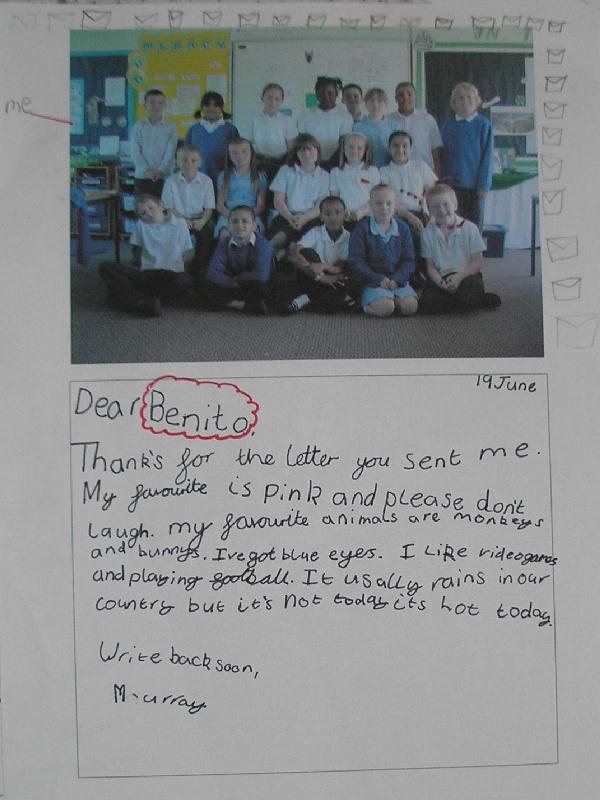 me
19 June
Dear Benito,
Thank's for the letter you sent me.
My favourite is pink and please don't
laugh. my favourite animals are monkeys
and bunnys. Ive got blue eyes. I like videogames
and playing football. It usally rains in our
country but it's not today its hot today.
Write back soon,
Murray